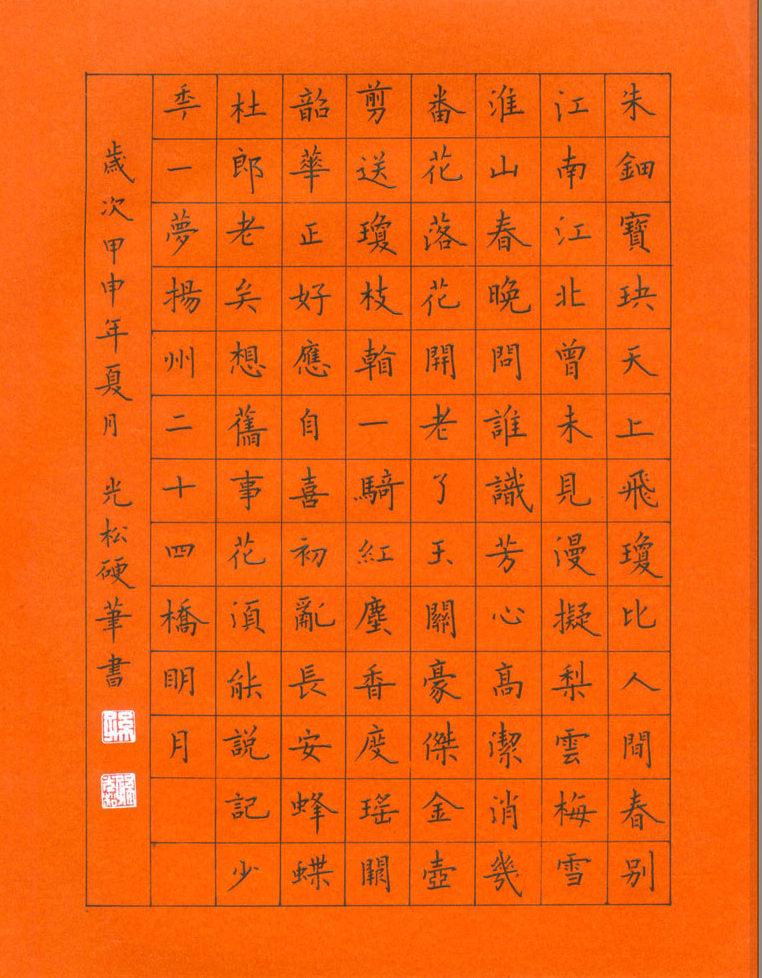 朱鈿寶玦天上飛瓊比人間春別
江南江北曾未見漫擬梨雲梅雪
淮山春晚問誰識芳心高潔消幾
番花落花開老了玉關豪傑金壺
剪送瓊枝㫋一騎紅塵香度瑤闕
韶華正好應自喜初亂長安蜂蝶
杜郎老矣想舊事花須能說記少
秊一夢揚州二十四橋明月
歲次甲申年夏月 光松硬筆書